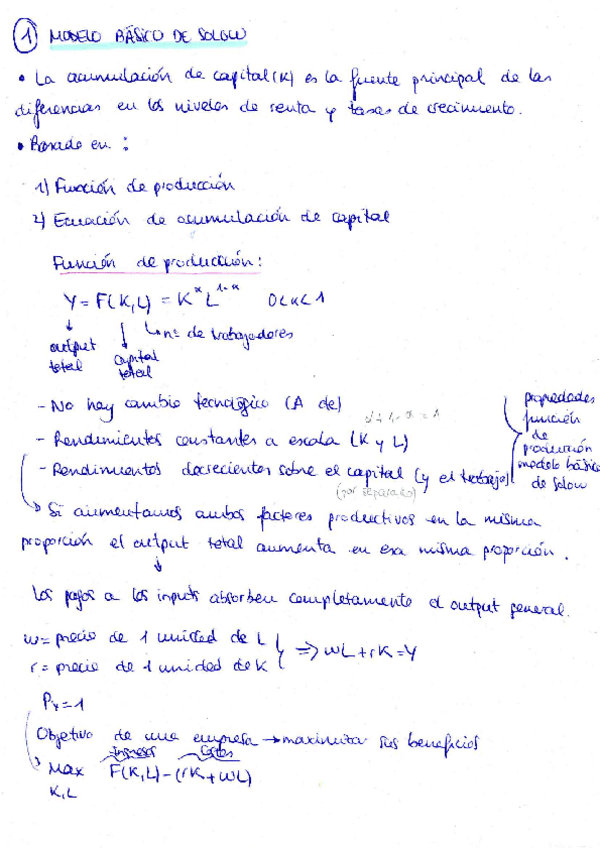 1 MODELO BÁSICO DE SOLOW
• La acumulación de capital (K) es la fuente principal de las
diferencias en los niveles de renta y tasas de crecimiento.
• Basado en :
1) Función de producción
2) Ecuación de acumulación de capital
Función de producción:
Y = F(K,L) = K^α L^1-α    0<α<1
↳ nº de trabajadores
output total
capital total
- No hay cambio tecnológico (A de)
α+1-α=1
- Rendimientos constantes a escala (K y L)
- Rendimientos decrecientes sobre el capital (y el trabajo)
(por separado)
propiedades
función
de
producción
modelo básico
de Solow
→ Si aumentamos ambos factores productivos en la misma
proporción el output total aumenta en esa misma proporción.
↓
Los pagos a los inputs absorben completamente el output general.
w = precio de 1 unidad de L
r = precio de 1 unidad de K
⇒ wL + rK = Y
Py = 1
Objetivo de una empresa → maximizar sus beneficios
Ingresos    Costes
Max    F(K,L) - (rK + wL)
K,L